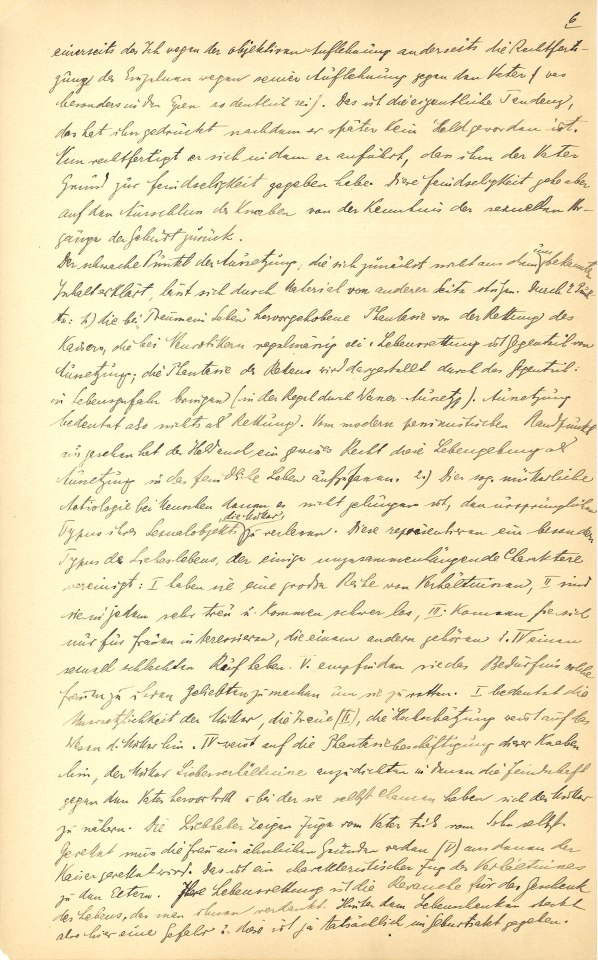 6
einerseits des Ich wegen der objektiven Auflehnung anderseits die Rechtferti-
gung des Einzelnen wegen seiner Auflehnung gegen den Vater (was
besonders in den Epen so deutlich sei). Das ist die eigentliche Tendenz,
das hat ihn gedrückt nachdem er später kein Held geworden ist.
Nun rechtfertigt er sich indem er anführt, dass ihm der Vater
Grund zur feindseligkeit gegeben habe. Diese feindseligkeit gehe aber
auf den Ausschluss des Knaben von der Kenntnis der sexuellen Vor-
gänge der Geburt zurück.
Der schwache Punkt der Aussetzung, die sich zunächst nicht aus dem unbekannten
Inhalt erklärt, lässt sich durch Material von anderer Seite stützen. Durch 2
1.) die bei Träumen Leben hervorgehobene Phantasie von der Rettung des
Kaisers, die bei Neurotikern regelmässig sei. Lebensrettung ist Gegenteil von
Aussetzung; die Phantasie des Rettens wird dargestellt durch das Gegenteil:
in Lebensgefahr bringen (in der Regel durch Wasser-Aussetzg). Aussetzung
bedeutet also nichts als Rettung. Vom modern pessimistischen Standpunkt
aus gesehen hat der Held auch ein gewisses Recht die Lebengebung als
Aussetzung in das feindliche Leben aufzufassen. 2.) Die sog. mütterliche
Aetiologie bei Menschen denen es nicht gelungen ist, den ursprünglichen
Typus ihres Sexualobjekts, die Mutter, zu verlassen. Diese repräsentieren ein besonderen
Typus des Liebeslebens, der einige unzusammenhängende Charaktere
vereinigt: I haben sie eine grosse Reihe von Verhältnissen, II sind
sie in jedem sehr treu u. kommen schwer los, III: Können sie sich
nur für Frauen interessieren, die einem andern gehören u. IV einen
sexuell schlechten Ruf haben. V. empfinden sie das Bedürfnis solche
frauen zu ihren Geliebten zu machen um sie zu retten. I bedeutet die
Unersetzlichkeit der Mutter, die Treue (II), die Hochschätzung weist auf das
Wesen d. Mutter hin. IV weist auf die Phantasiebeschäftigung dieser Knaben
hin, der Mutter Liebesverhältnisse anzudichten in denen die Feindschaft
gegen den Vater hervortritt u. bei der sie selbst Chancen haben sich der Mutter
zu nähern. Die Liebhaber zeigen Züge vom Vater teils vom Sohn selbst.
Gerettet muss die frau aus ähnlichen Gründen werden (V) aus denen der
Kaiser gerettet wird. Das ist ein charakteristischer Zug des Verhältnisses
zu den Eltern. Lebensrettung ist die Revanche für das Geschenk
des Lebens, das man ihnen verdankt. Hinter dem Lebenschenken steckt
also hier eine Gefahr u. diese ist ja tatsächlich im Geburtsakt gegeben.